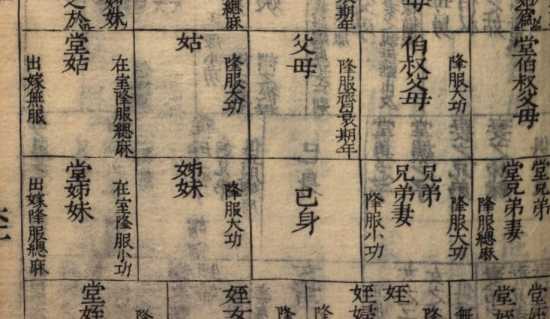 母
期年
姊妹
總麻
之於
堂伯叔父母
降服大功
伯叔父母
降服齊衰期年
父母
降服大功
姑
在室降服總麻
堂姑
出嫁無服
堂兄弟
堂兄弟妻
降服總麻
降服大功
兄弟
兄弟妻
降服小功
己身
降服大功
姊妹
在室降服小功
堂姊妹
出嫁降服總麻
堂姪
堂姪
無
姪
姪婦
降
降
姪女
降
堂姪